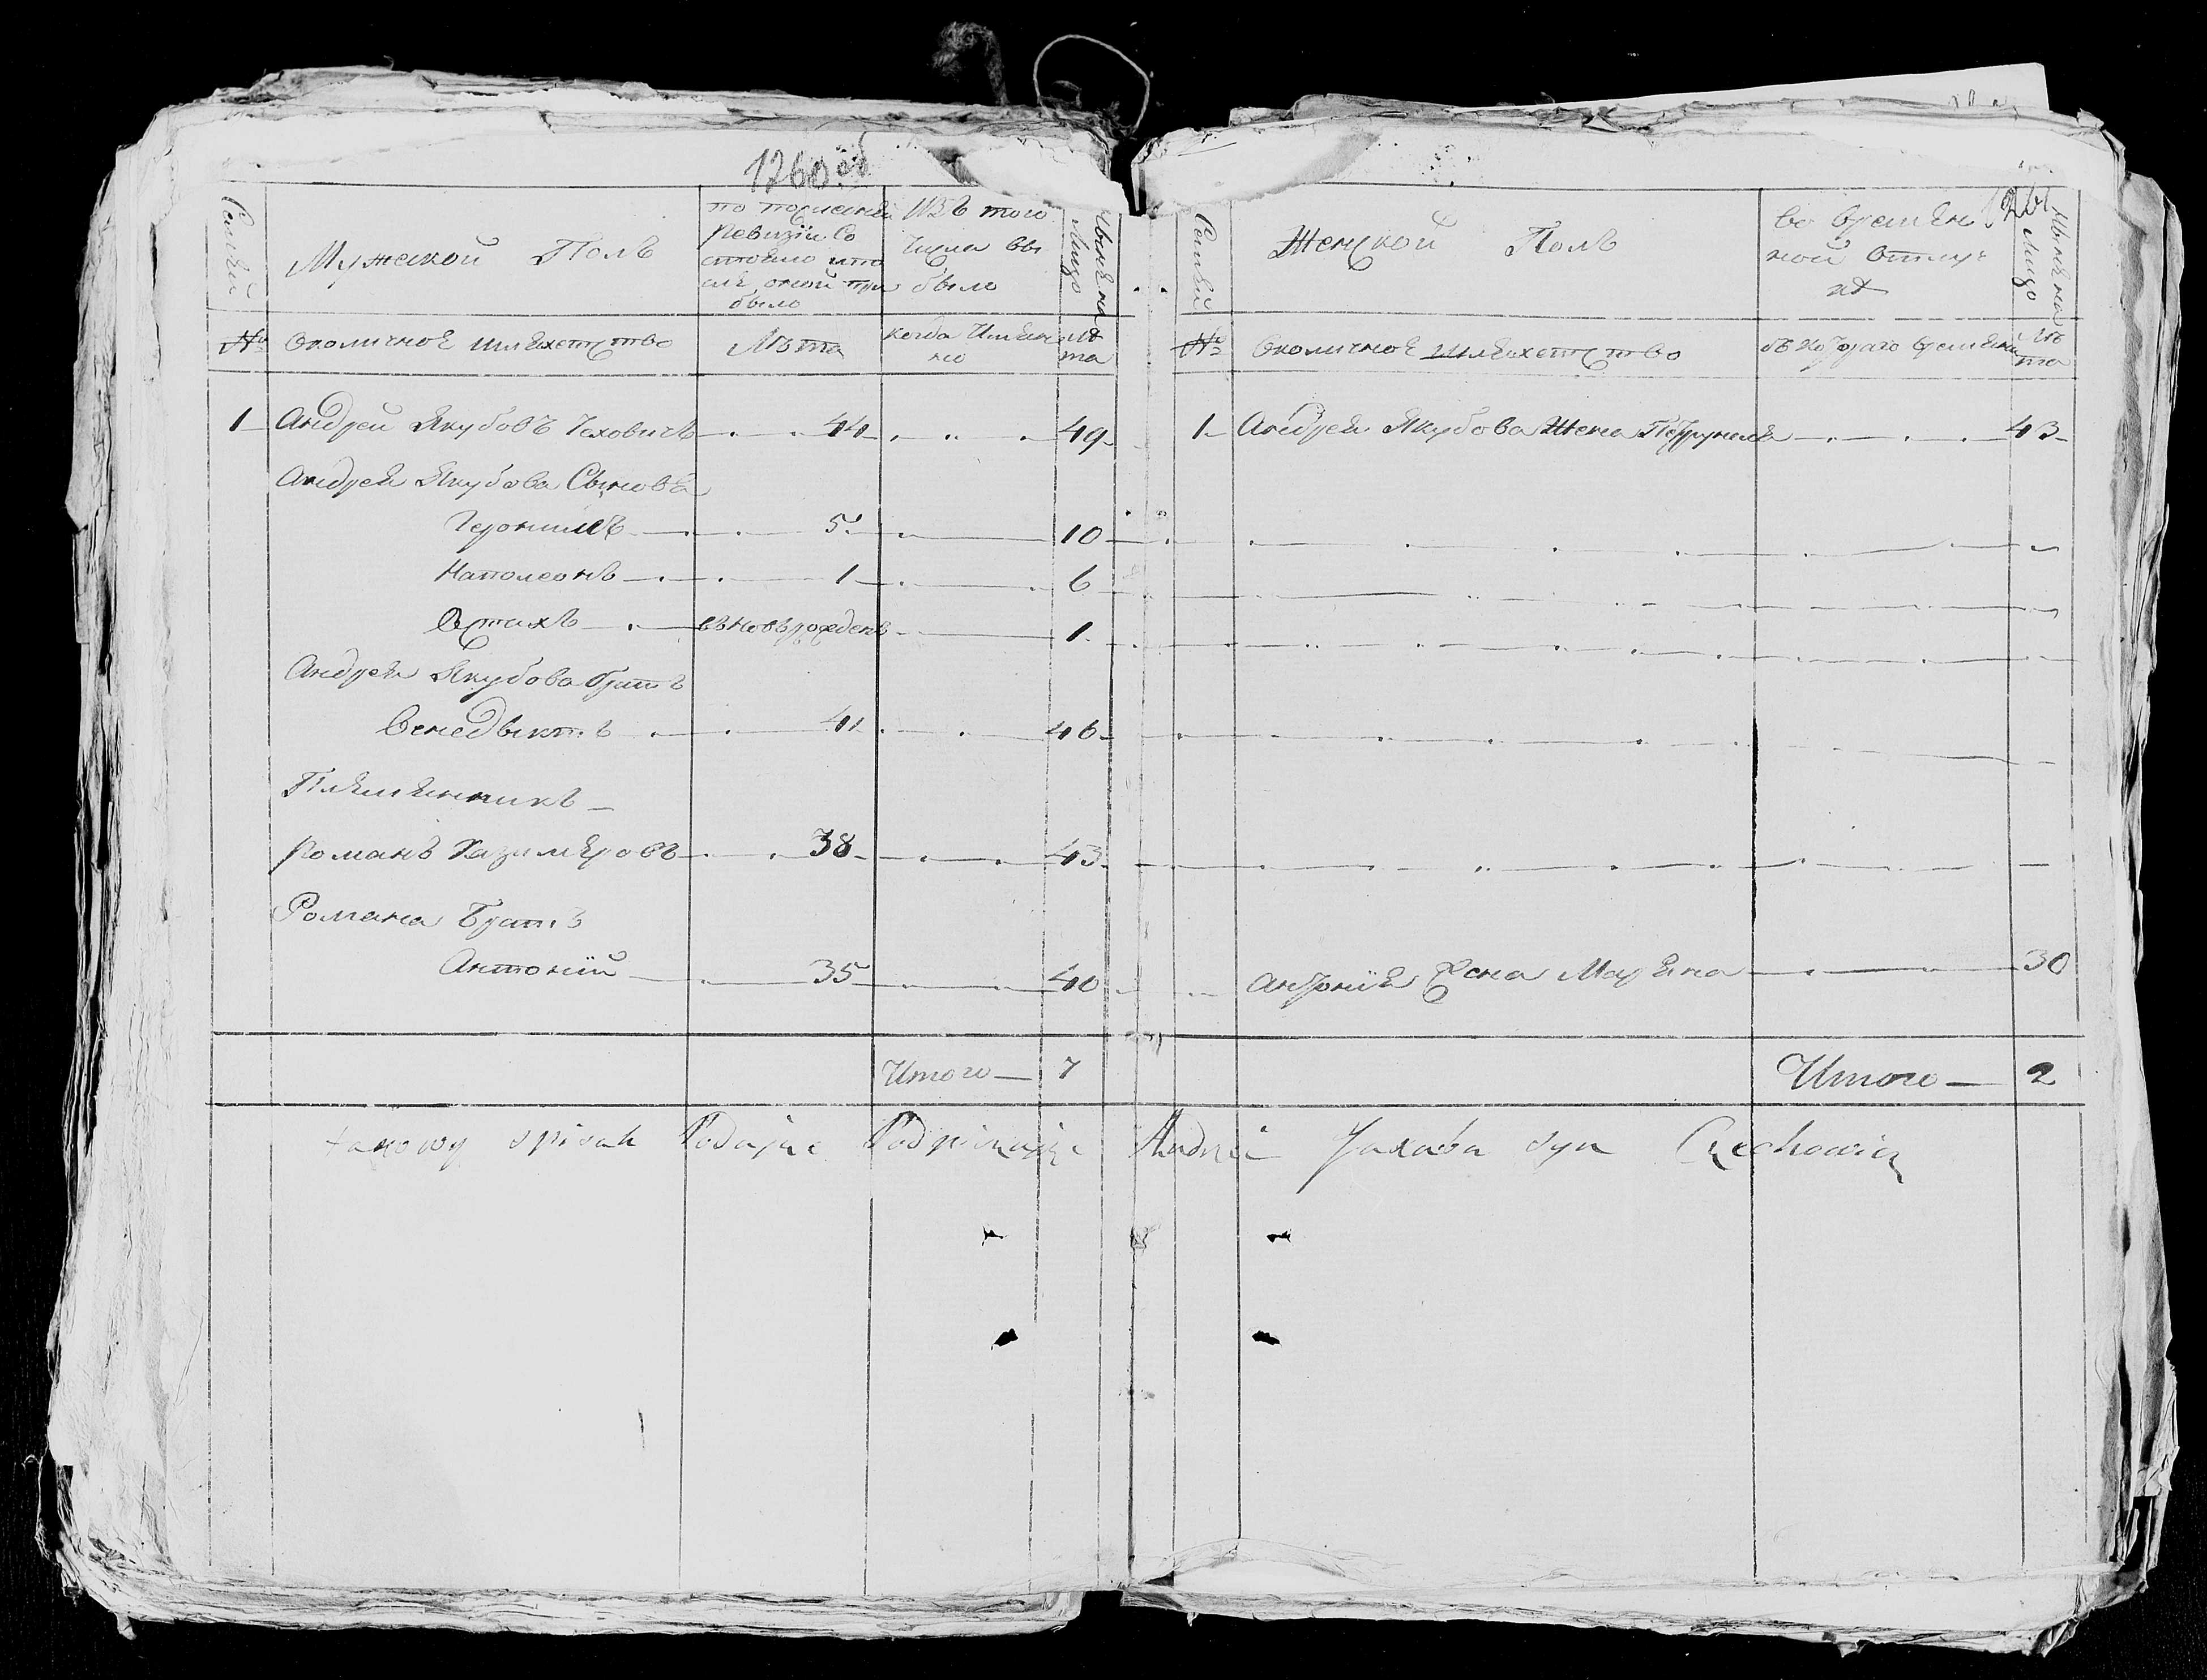 1260 об
Семьи
Мужеской Полъ
по последней
Ревизіи Со
стояло и по
сле оной при
было
Изъ того
Числа вы
было
Ныне на
Лицо
№
Околичное шляхетство
Лѣта
когда Имян
но
Лѣ
та
1 Андрей Якубовъ Чеховичъ 44 49
Андрея Якубова Сыновя
Героnимъ 5 10
Наполеонъ 1 6
Естахъ вновьрожденъ 1
Андрея Якубова братъ
Венедыктъ 41 46
Племянникъ
Романъ Казимеровъ 38 43
Романа Братъ
Антоній 35 40
Итого 7
1261
Семьи
Женской Полъ
во времян
ной отлуч
кѣ
Ныне на
Лицо
№
Околичное шляхетство
съ котораго времяни
Лѣ
та
1 Андрея Якубова Жена Петрунеля 43
Антонія Жена Маряна 30
Итого 2
takowy spisak Podajac Podpisujac Andrei Jakuba syn Czechowicz